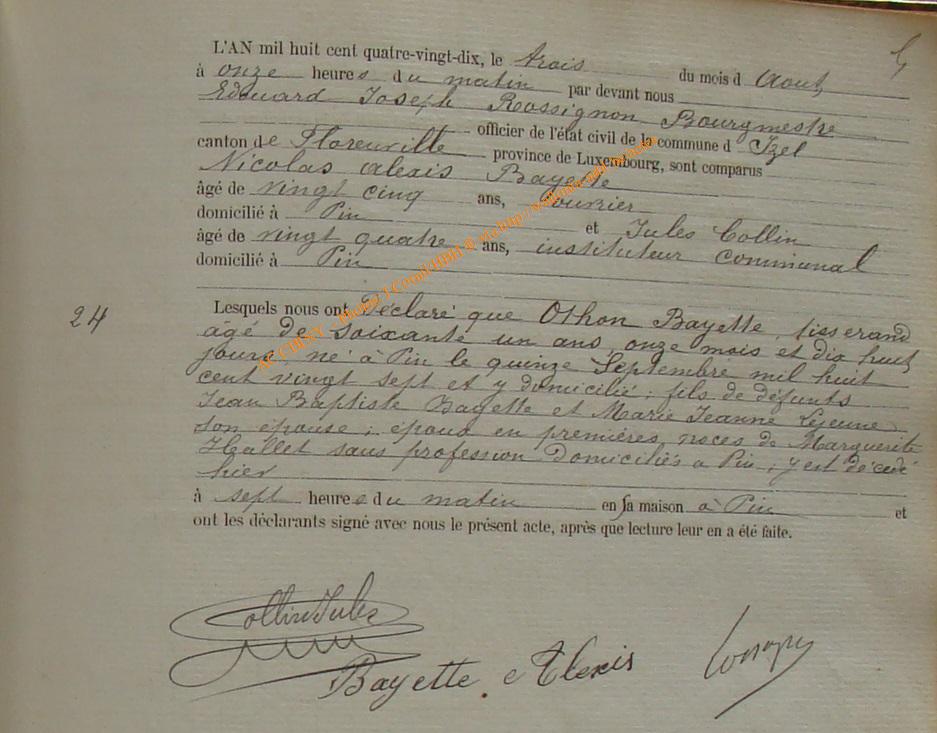 L'AN mil huit cent quatre-vingt-dix, le trois du mois d Aout
à onze heures du matin par devant nous
Edouard Joseph Rossignon Bourgmestre
officier de l'état civil de la commune d Izel
canton de Florenville province de Luxembourg, sont comparus
Nicolas Alexis Bayette
âgé de vingt cinq ans, ouvrier
domicilié à Pin et Jules Collin
âgé de vingt quatre ans, instituteur communal
domicilié à Pin
24
Lesquels nous ont Déclaré que Othon Bayette, tisserand
âgé de soixante un ans onze mois et dix huit
jours, né à Pin le quinze Septembre mil huit
cent vingt sept et y domicilié; fils de défunts
Jean Baptiste Bayette et Marie Jeanne Lejeune
son épouse; époux en premières noces de Marguerite
Hallet sans profession domiciliés a Pin; y est décédé
hier
à sept heures du matin en sa maison à Pin et
ont les déclarants signé avec nous le présent acte, après que lecture leur en a été faite.
Collin Jules
Bayette Alexis